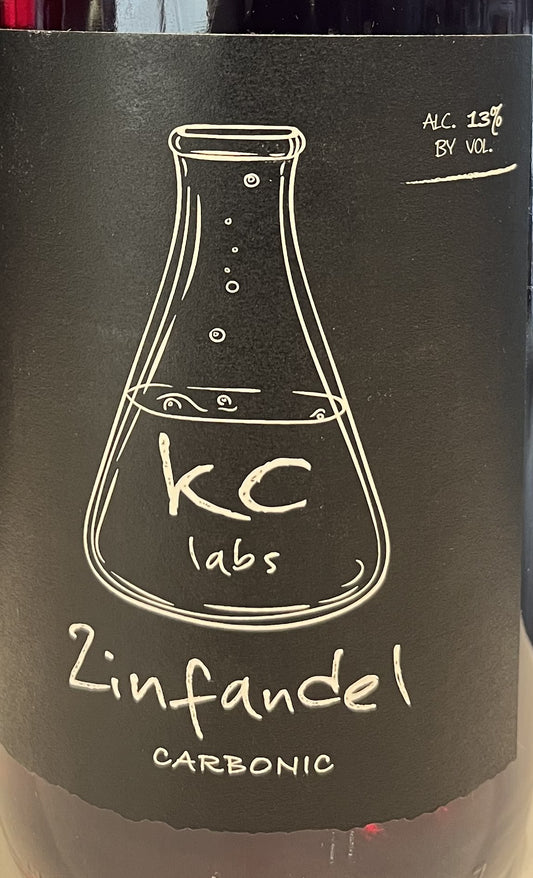 ALC. 13%
BY VOL.
kc
labs
Zinfandel
CARBONIC